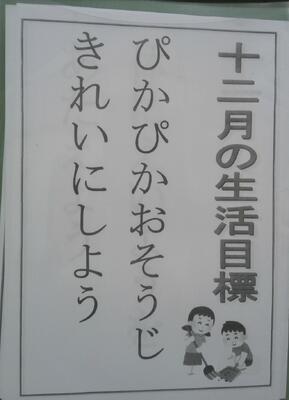 十二月の生活目標
ぴかぴかおそうじ
きれいにしよう